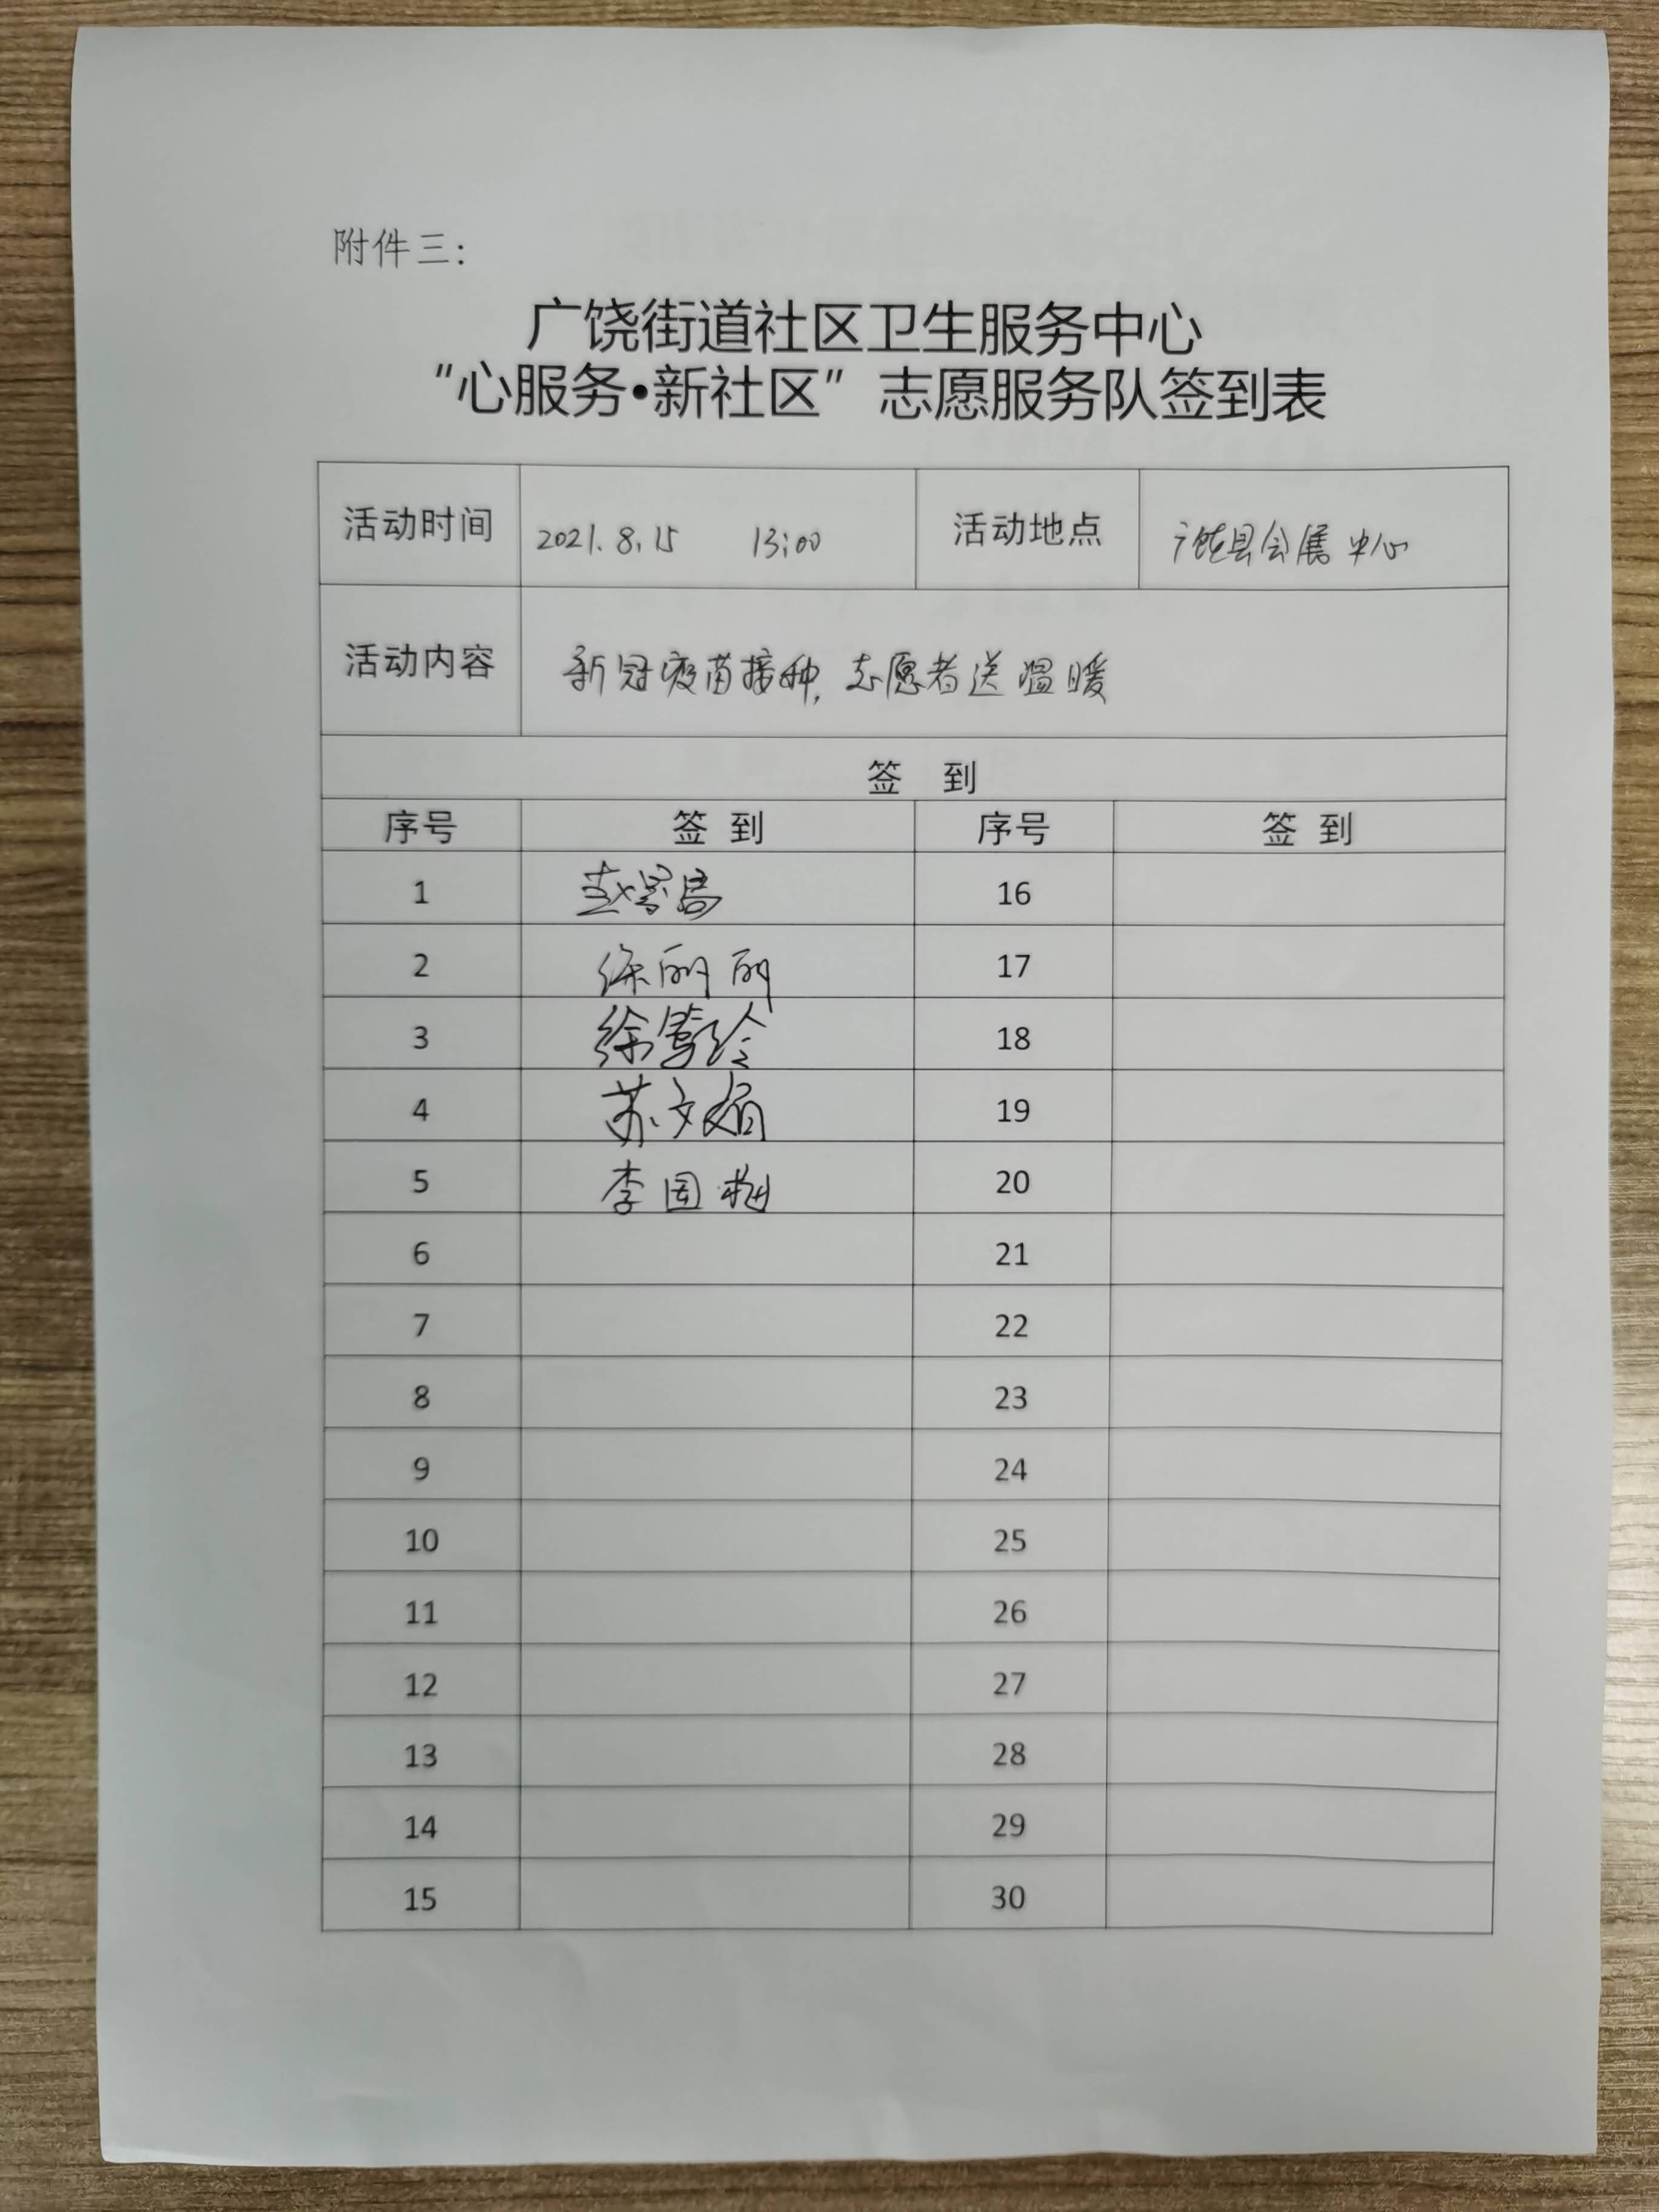 附件三：
广饶街道社区卫生服务中心
“心服务•新社区”志愿服务队签到表
活动时间 2021.8.15 13:00 活动地点 广饶县会展中心
活动内容 新冠疫苗接种，志愿者送温暖
签 到
序号 签 到 序号 签 到
1 16
2 徐丽丽 17
3 徐莺玲 18
4 苏文娟 19
5 李国梅 20
6 21
7 22
8 23
9 24
10 25
11 26
12 27
13 28
14 29
15 30